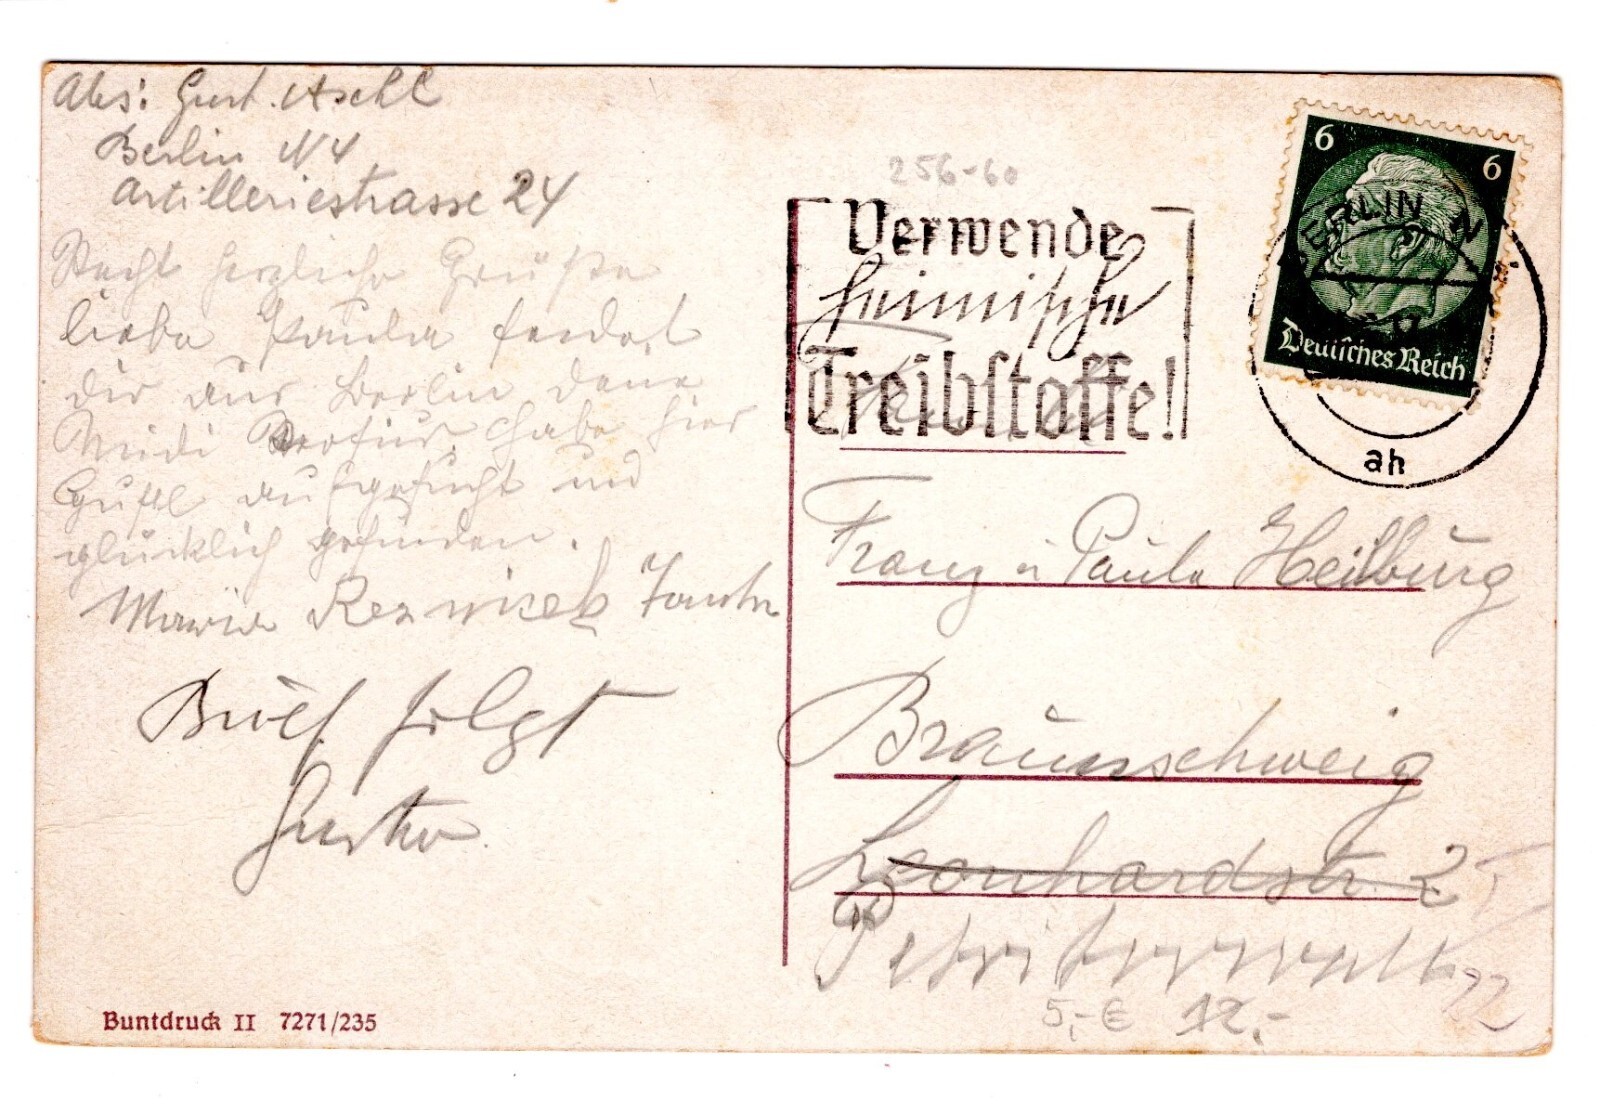 Abs: Gust. Aschl
Berlin N4
Artilleriestrasse 24
Recht herzliche Grüße
liebe Paula sendet
dir aus Berlin deine
Midi. Habe hier
Gustl aufgesucht und
glücklich gefunden.
Maria
Brief folgt
256-60
Verwende
heimische
Treibstoffe!
6 6
Deutsches Reich
BERLIN N
ah
Franz u Paula Heilburg
Braunschweig
Leonhardstr. 2
Petritorwall 22
5,-€ 12,-
Buntdruck II 7271/235